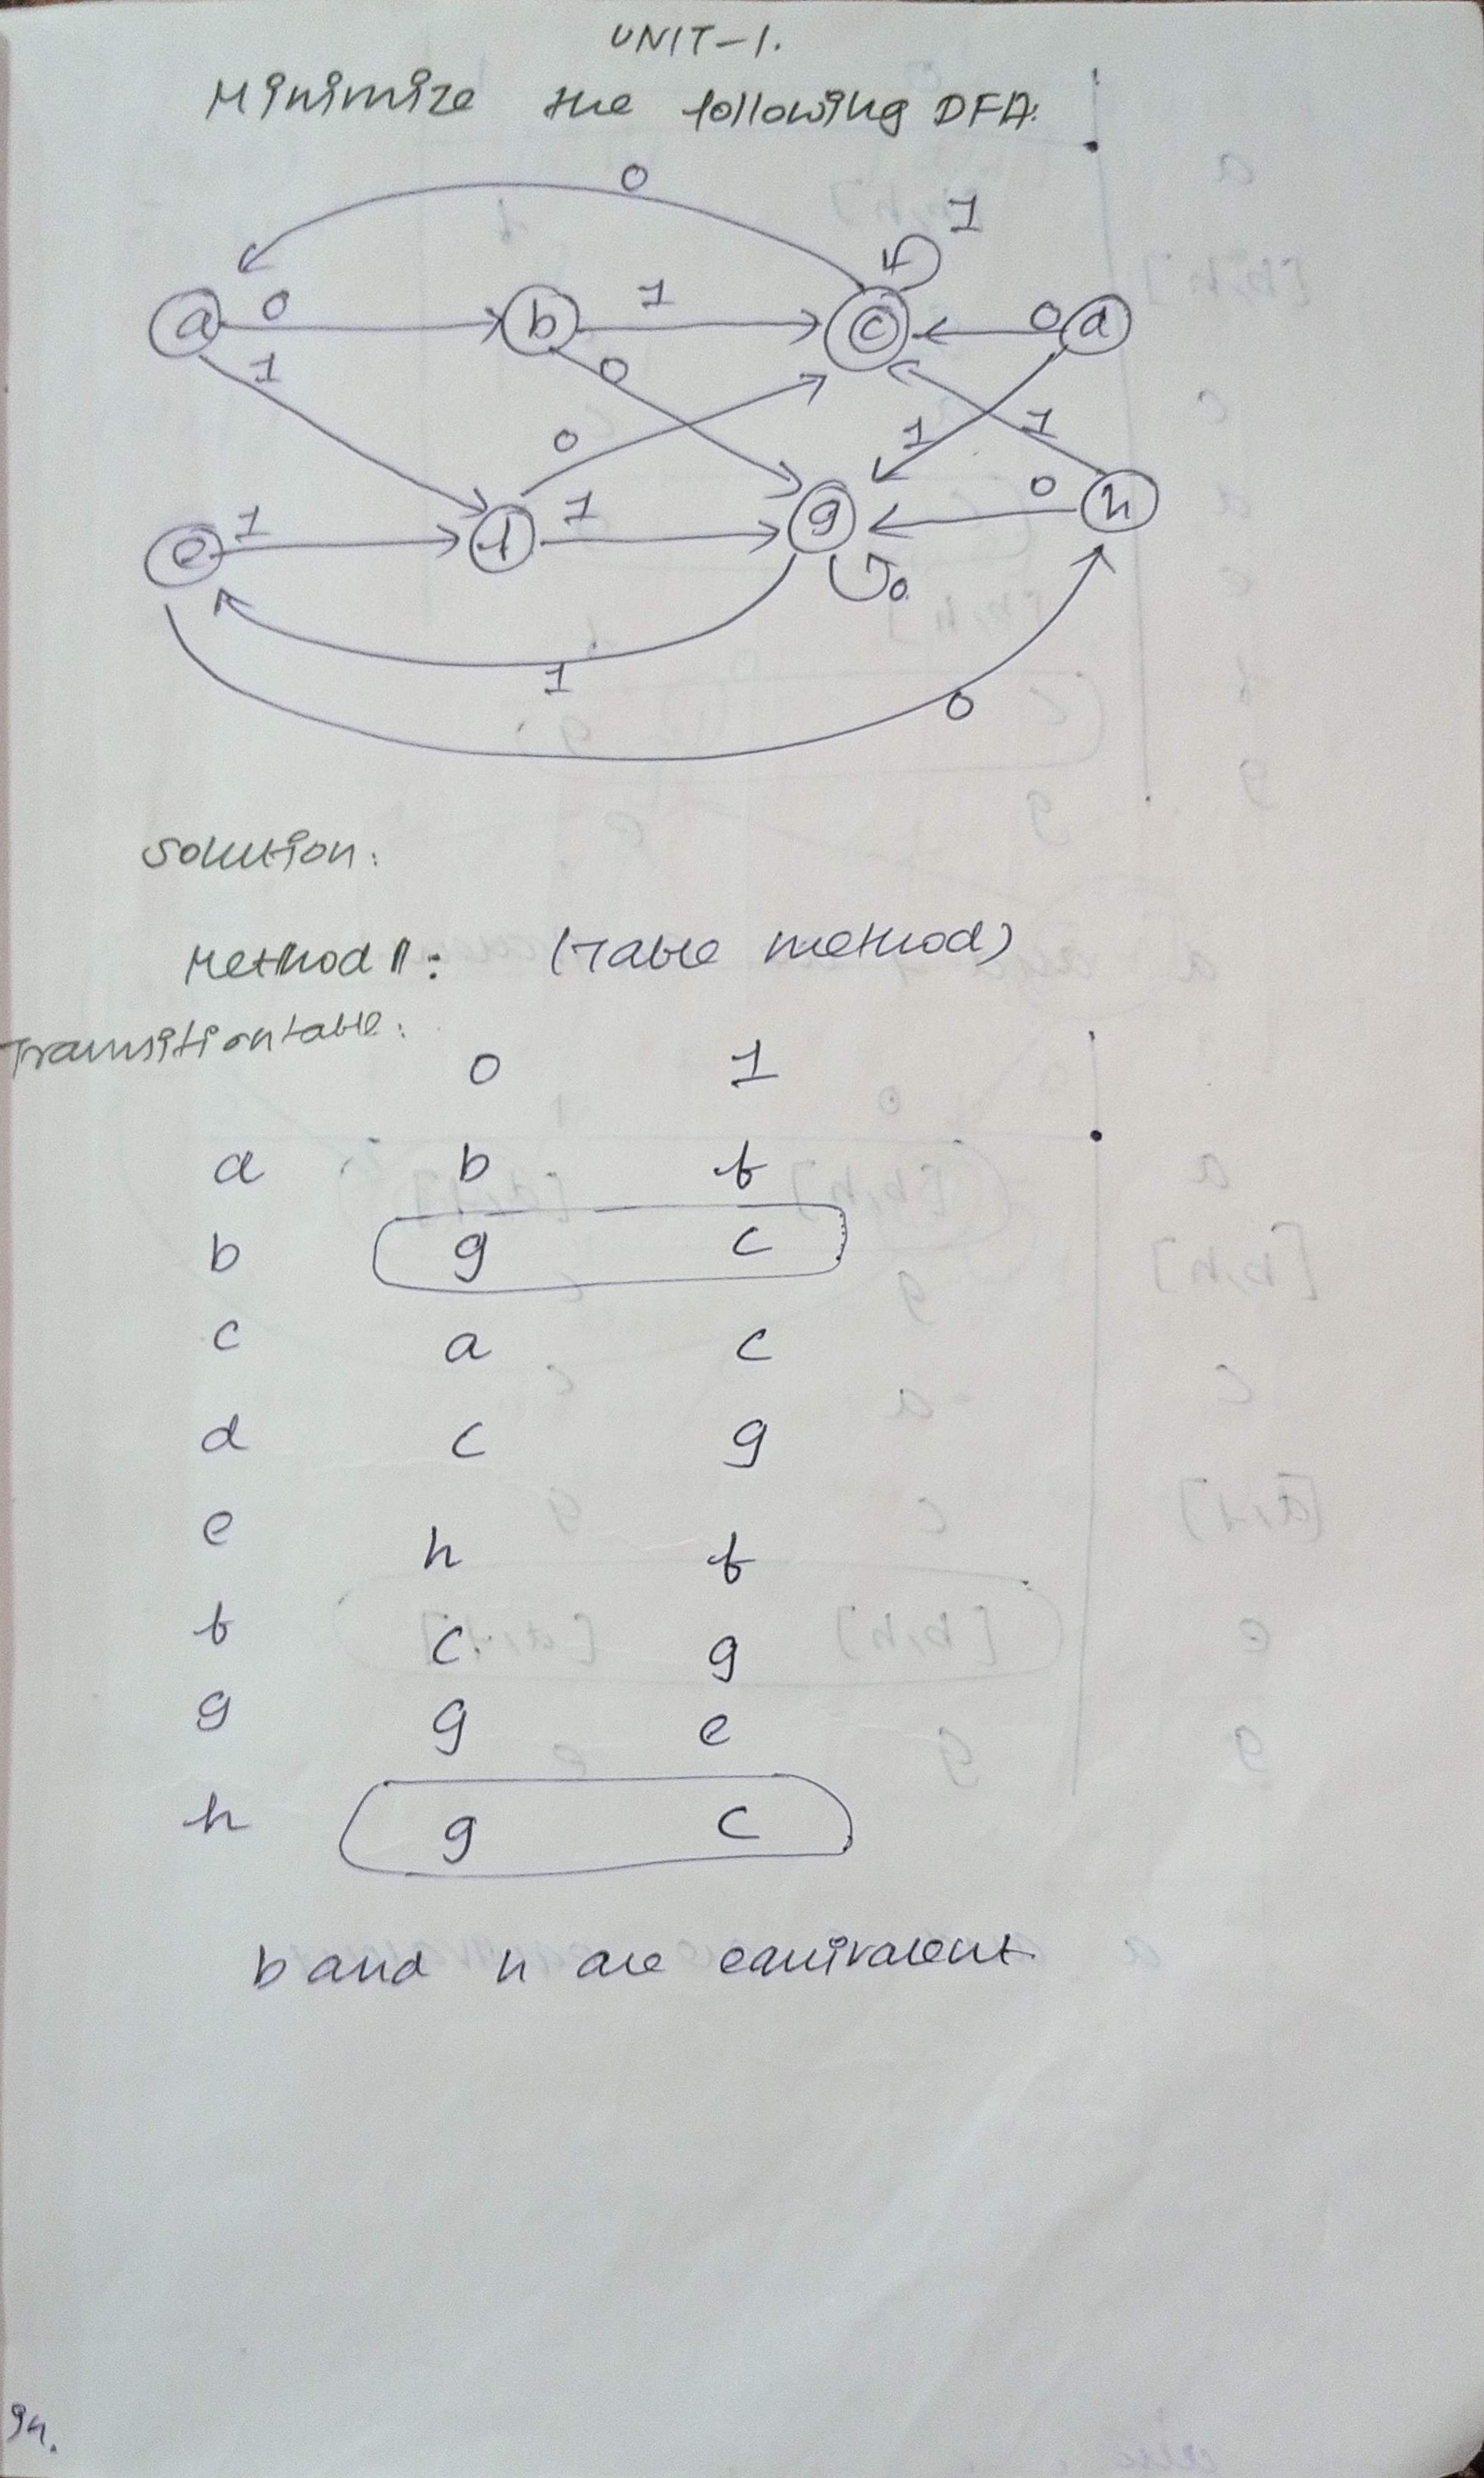 UNIT-1.
Minimize the following DFA:
0
1
a 0 b 1 c 0 d
1 0
0 1 1
e 1 f 1 g 0 h
0
1
0
Solution:
Method 1: (Table method)
Transition table:
0 1
a b f
b g c
c a c
d c g
e h f
f c g
g g e
h g c
b and h are equivalent.